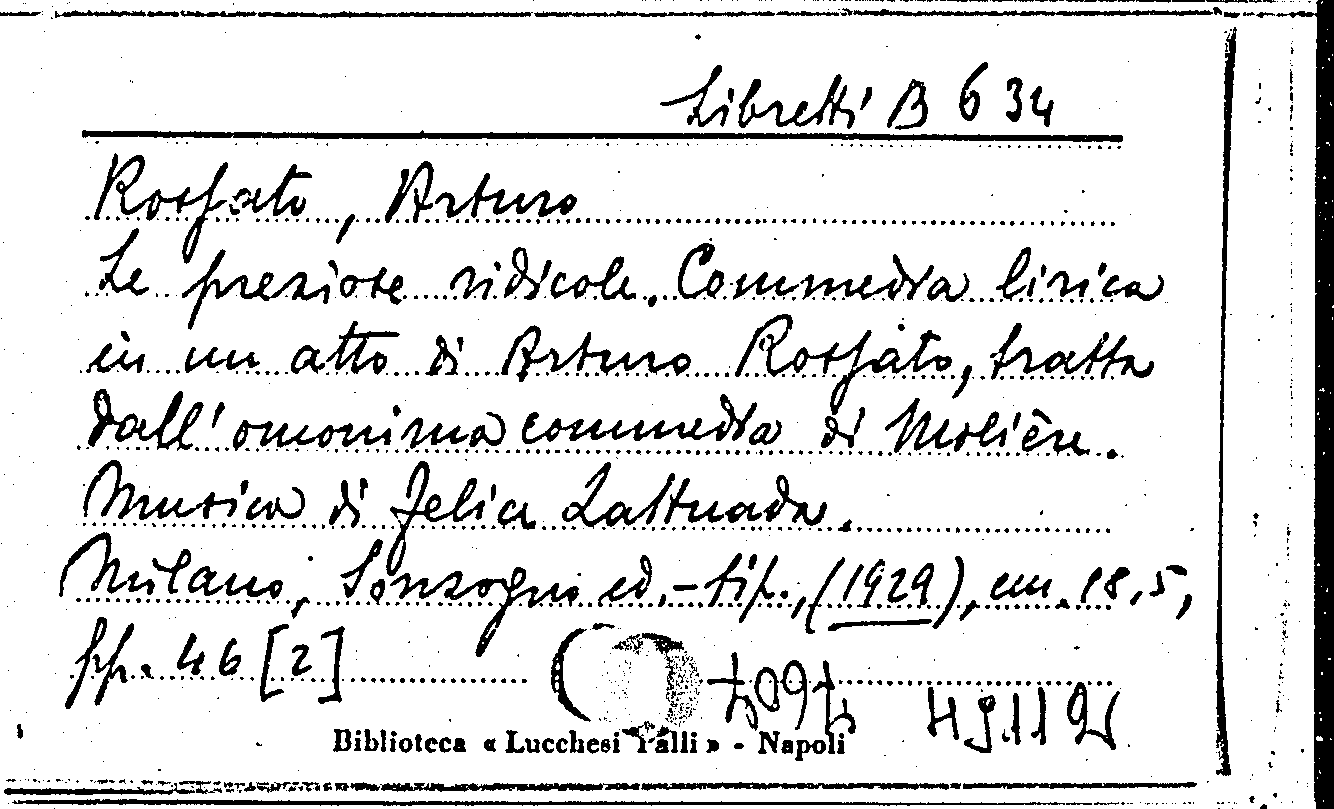 Libretti B 634
Rossato, Arturo
Le preziose ridicole. Commedia lirica
in un atto di Arturo Rossato, tratta
dall'omonima commedia di Molière.
Musica di Felice Lattuada.
Milano, Sonzogno ed.-tip., (1929), cm. 18,5,
pp. 46 [2]
Biblioteca « Lucchesi Palli » - Napoli